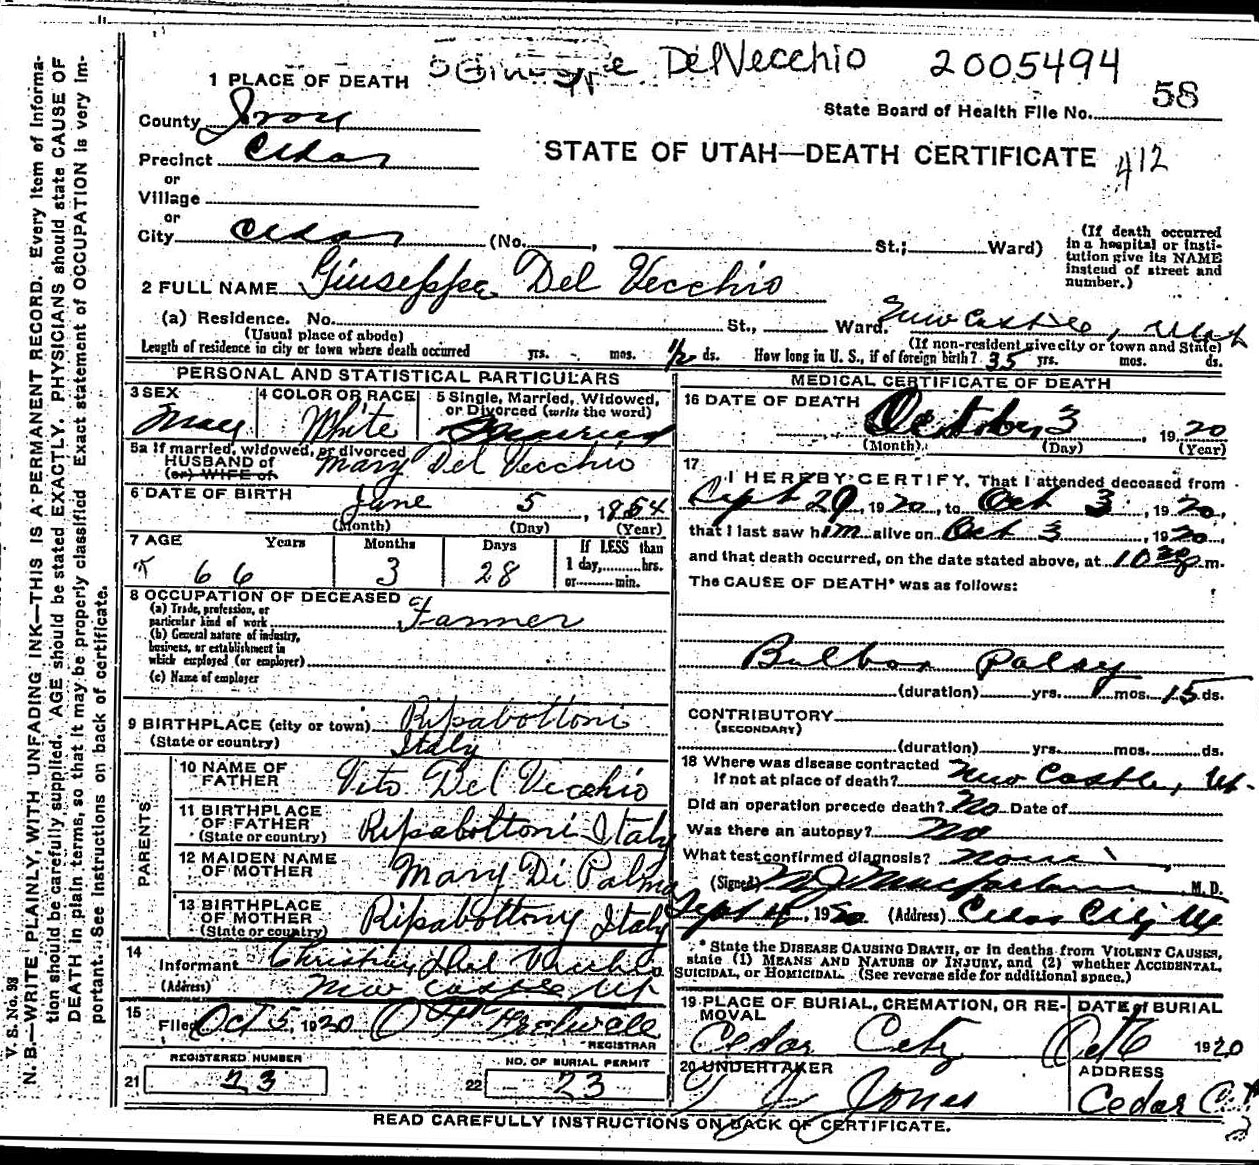 Giuseppe DelVecchio 2005494
1 PLACE OF DEATH
State Board of Health File No. 58
County Iron
Precinct Cedar
STATE OF UTAH—DEATH CERTIFICATE 412
or
Village
or
City Cedar (No. , St.; Ward)
(If death occurred in a hospital or insti-
tution give its NAME
instead of street and
number.)
2 FULL NAME Giuseppe Del Vecchio
(a) Residence. No. St., Ward. New Castle, Utah
(Usual place of abode) (If non-resident give city or town and State)
Length of residence in city or town where death occurred yrs. - mos. 1/2 ds. How long in U. S., if of foreign birth? 35 yrs. mos. ds.
PERSONAL AND STATISTICAL PARTICULARS
3 SEX Male
4 COLOR OR RACE White
5 Single, Married, Widowed,
or Divorced (write the word)
Married
5a If married, widowed, or divorced
HUSBAND of
(or) WIFE of Mary Del Vecchio
6 DATE OF BIRTH
June 5, 1854
(Month) (Day) (Year)
7 AGE Years Months Days If LESS than
66 3 28 1 day, hrs.
or min.
8 OCCUPATION OF DECEASED
(a) Trade, profession, or
particular kind of work Farmer
(b) General nature of industry,
business, or establishment in
which employed (or employer)
(c) Name of employer
9 BIRTHPLACE (city or town) Ripabottoni
(State or country) Italy
PARENTS
10 NAME OF
FATHER Vito Del Vecchio
11 BIRTHPLACE
OF FATHER
(State or country) Ripabottoni Italy
12 MAIDEN NAME
OF MOTHER Mary Di Palma
13 BIRTHPLACE
OF MOTHER
(State or country) Ripabottony Italy
14
Informant Del Vecchio
(Address) New Castle Ut
15
Filed Oct 5, 1920
REGISTRAR
REGISTERED NUMBER
21 23
NO. OF BURIAL PERMIT
22 23
MEDICAL CERTIFICATE OF DEATH
16 DATE OF DEATH
October 3, 1920
(Month) (Day) (Year)
17
I HEREBY CERTIFY, That I attended deceased from
Sept 29, 1920, to Oct 3, 1920,
that I last saw him alive on Oct 3, 1920,
and that death occurred, on the date stated above, at 10 m.
The CAUSE OF DEATH* was as follows:
Bulbar Palsy
(duration) yrs. 1 mos. 15 ds.
CONTRIBUTORY
(SECONDARY)
(duration) yrs. mos. ds.
18 Where was disease contracted
If not at place of death? New Castle, Ut.
Did an operation precede death? No Date of
Was there an autopsy? No
What test confirmed diagnosis? None
(Signed) M J Macfarlane, M. D.
Sept 4, 1920 (Address) Cedar City Ut
* State the DISEASE CAUSING DEATH, or in deaths from VIOLENT CAUSES,
state (1) MEANS AND NATURE OF INJURY, and (2) whether ACCIDENTAL,
SUICIDAL, or HOMICIDAL. (See reverse side for additional space.)
19 PLACE OF BURIAL, CREMATION, OR RE-
MOVAL
Cedar City
DATE of BURIAL
Oct 6 1920
20 UNDERTAKER
T J Jones
ADDRESS
Cedar City
READ CAREFULLY INSTRUCTIONS ON BACK OF CERTIFICATE.
V. S. No. 93
N. B.—WRITE PLAINLY, WITH UNFADING INK—THIS IS A PERMANENT RECORD. Every item of Informa-
tion should be carefully supplied. AGE should be stated EXACTLY. PHYSICIANS should state CAUSE OF
DEATH in plain terms, so that it may be properly classified. Exact statement of OCCUPATION is very im-
portant. See instructions on back of certificate.